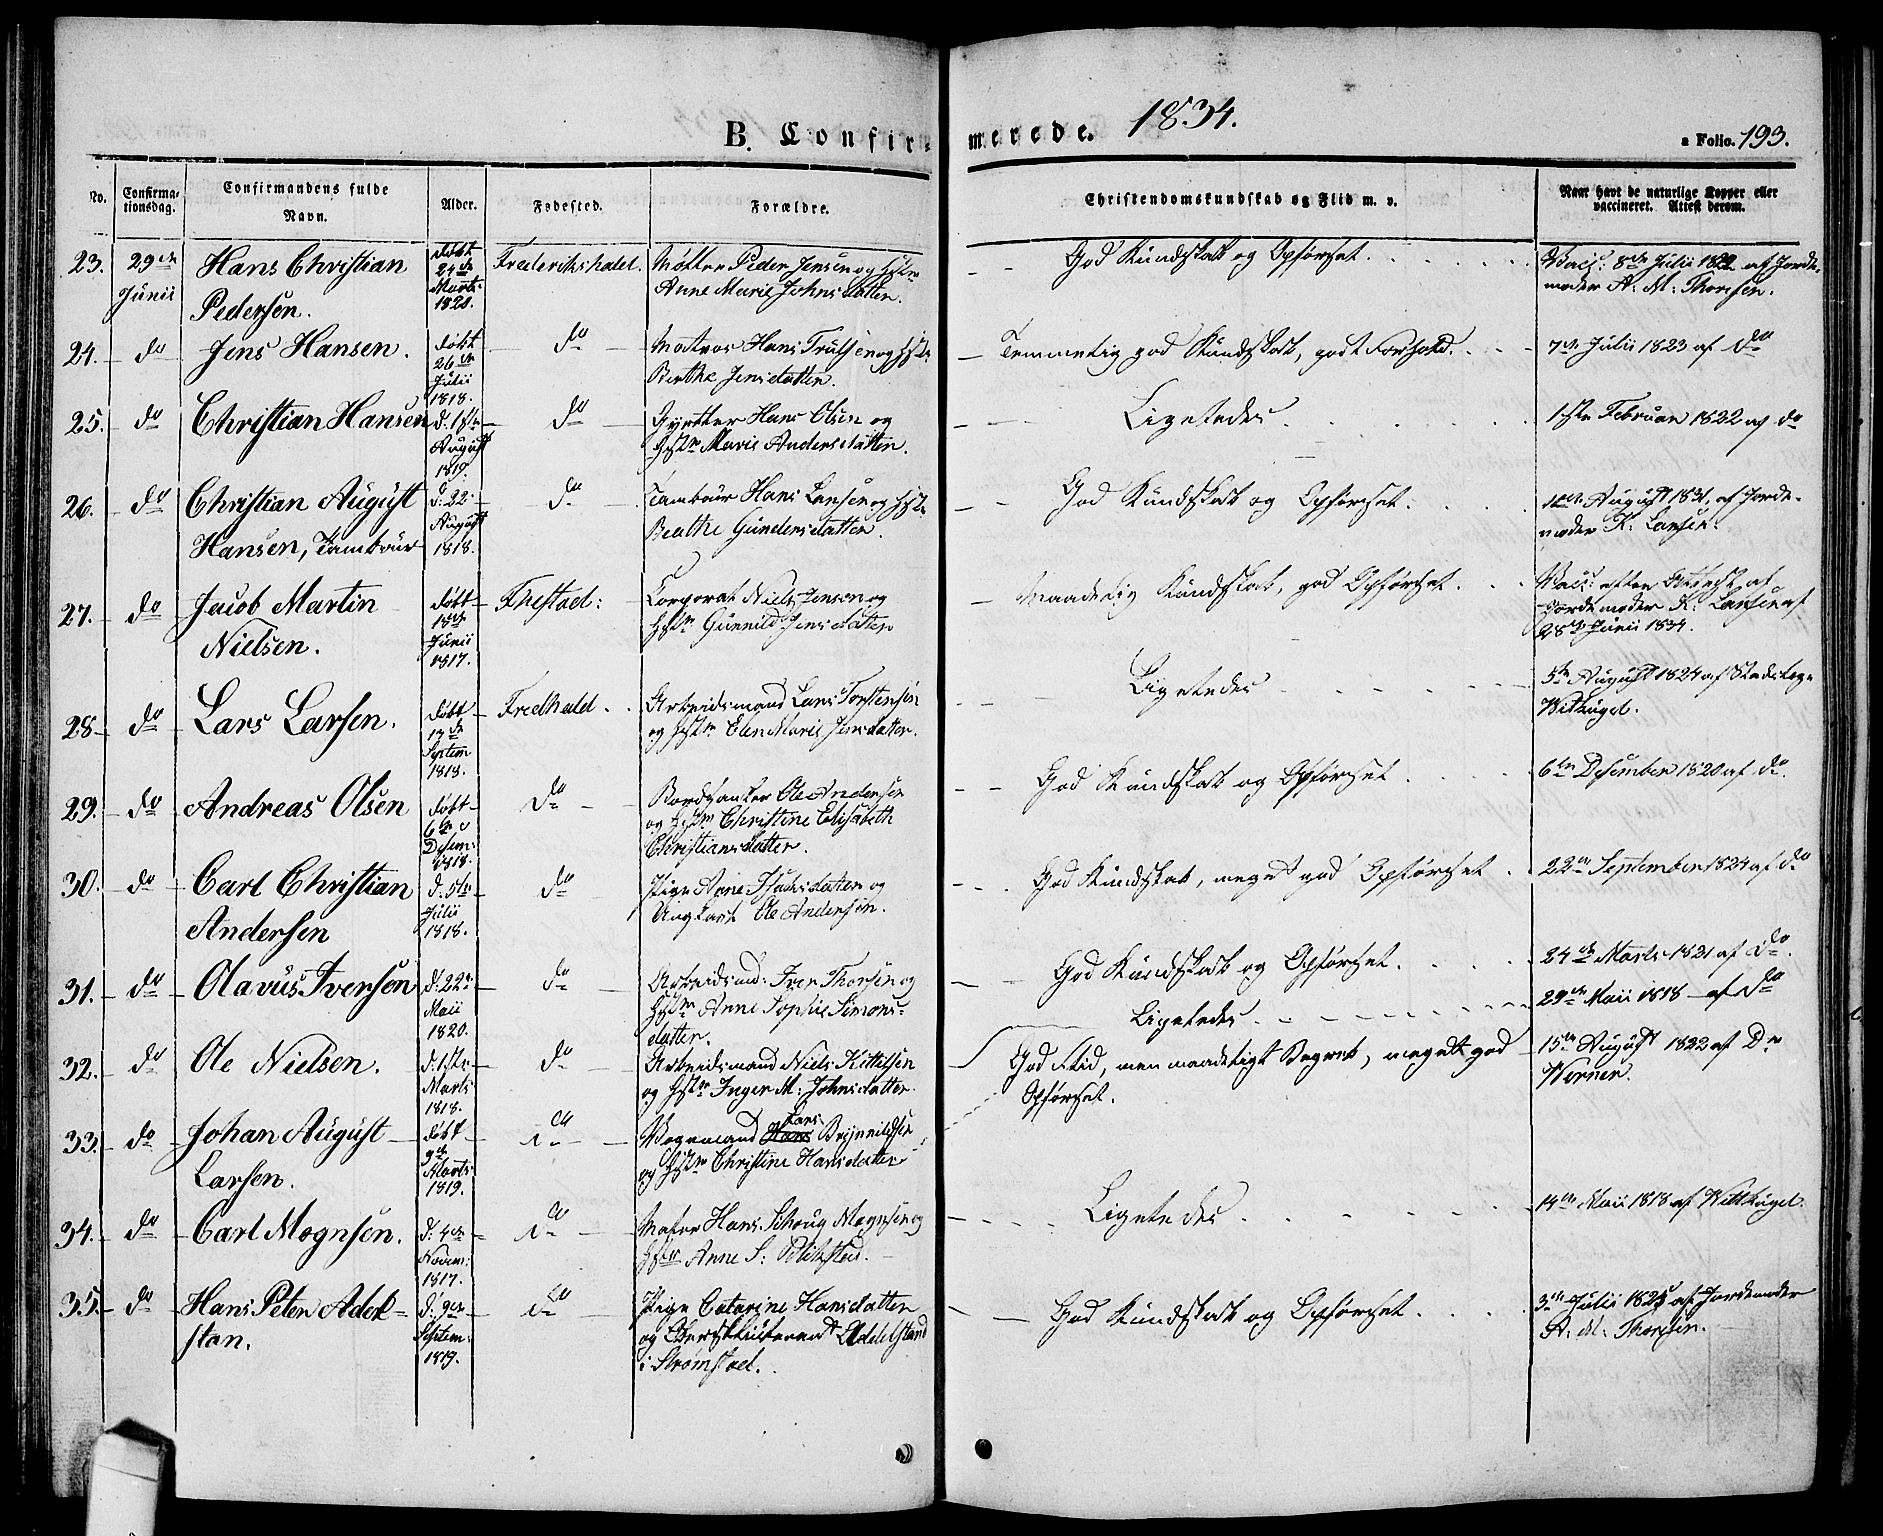 B. Confir-
merede. 1834.
a Folio. 193.
No.
Confirma-
tionsdag.
Confirmandens fulde
Navn.
Alder.
Fødested.
Forældre.
Christendomskundskab og Flid m. v.
Naar havt de naturlige Kopper eller
vaccineret. Attest derom.
23. 29de Junii
Hans Christian
Pedersen.
døbt
24de
Marts
1820.
Frederikshald.
Peder Jensen og Hstr
Anne Marie Johnsdatter.
God Kundskab og Opførsel.
Vacc: 8de Julii 1822 af Jorde-
moder A. M. Thoresen.
24. do
Jens Hansen.
døbt
26de
Julii
1818.
do
Matros Hans Trulsen og Hstr
Birthe Jensdatter.
Temmelig god Kundskab, godt Forhold.
7de Julii 1823 af do
25. do
Christian Hansen
d. 18de
August
1819.
do
Hans Olsen og
Hstr Marie Andersdatter.
Ligeledes.
1ste Februar 1822 af do
26. do
Christian August
Hansen, Tambour
d. 22
August
1818.
do
Tambour Hans Larsen og Hstr
Beathe Gundersdatter.
God Kundskab og Opførsel.
August 1831 af Jorde-
moder K. Larsen.
27. do
Jacob Martin
Nielsen.
døbt
18de
Junii
1817.
Frestad:
Corporal Niels Jensen og
Hstr Gunnild Jensdatter
Maadelig Kundskab, god Opførsel.
Vacc: efter Attest af
Jordemoder K. Larsen af
28de Junii 1834.
28. do
Lars Larsen.
døbt
13de
Septem
1818.
Fredhald.
Arbeidsmand Lars Torstensen
og Hstr Elen Marie Jensdatter.
Ligeledes
5te August 1824 af Stadslæge
Wilkügel.
29. do
Andreas Olsen
døbt
6te
Desem:
1818.
do
Ole Andersen
og Hstr Christine Elisabeth
Christiansdatter.
God Kundskab og Opførsel
6te Desember 1820 af do.
30. do
Carl Christian
Andersen
d. 5te
Julii
1818.
do
Pige Anne Isachsdatter og
Ungkarl Ole Andersen.
God Kundskab, meget god Opførsel
22de September 1824 af do
31. do
Olavus Iversen
d. 22de
Maii
1820.
do
Arbeidsmd: Iver Thorsen og
Hstr Anne Sophie Simons-
datter.
God Kundskab og Opførsel.
24de Marts 1821 af do.
32. do
Ole Nielsen.
d. 1ste
Marts
1818.
do
Arbeidsmand Niels Kittelsen
og Hstr Inger M: Johnsdatter.
Ligeledes
29de Maii 1818 af do
33. do
Johan August
Larsen.
døbt
9de
Marts
1819.
do
Vognmand Hans Lars Brynnildsen
og Hstr Christine Hansdatter
God Flid, men maadeligt Begreb, meget god
Opførsel.
15de August 1822 af Dr
Werner.
34. do
Carl Mognsen.
d. 4de
Novem:
1817.
do
Maler Hans Schoug Mognsen og
Hstr Anne S:
Ligeledes
14de Maii 1818 af Wilkügel.
35. do
Hans Peter Adel-
stan.
d. 9de
Septem:
1819.
do
Pige Catarine Hansdatter
og Oberstlieutenant Addelstand
i Strømstad.
God Kundskab og Opførsel.
Julii 1825 af Jordemoder
A. M. Thoresen.